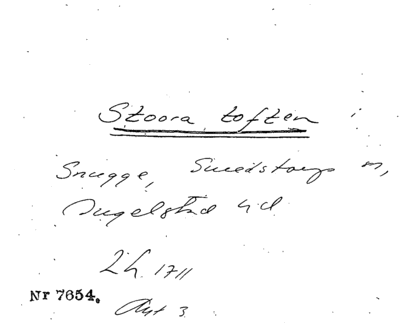 Stoora toften i
Snugge, Smedstorps sn,
Ingelstad hd
2 h. 1711
Nr 7654.
Akt 3